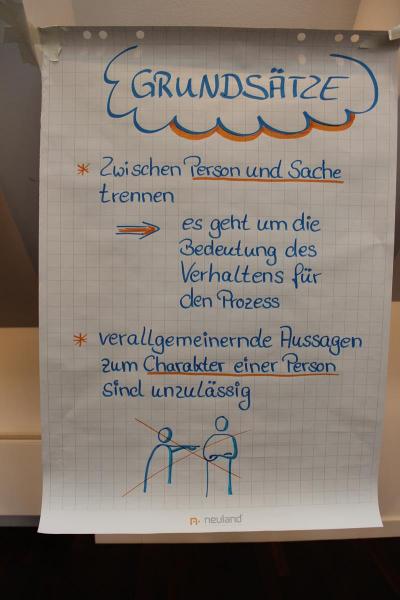 GRUNDSÄTZE
* Zwischen Person und Sache
trennen
⇒ es geht um die
Bedeutung des
Verhaltens für
den Prozess
* verallgemeinernde Aussagen
zum Charakter einer Person
sind unzulässig
neuland